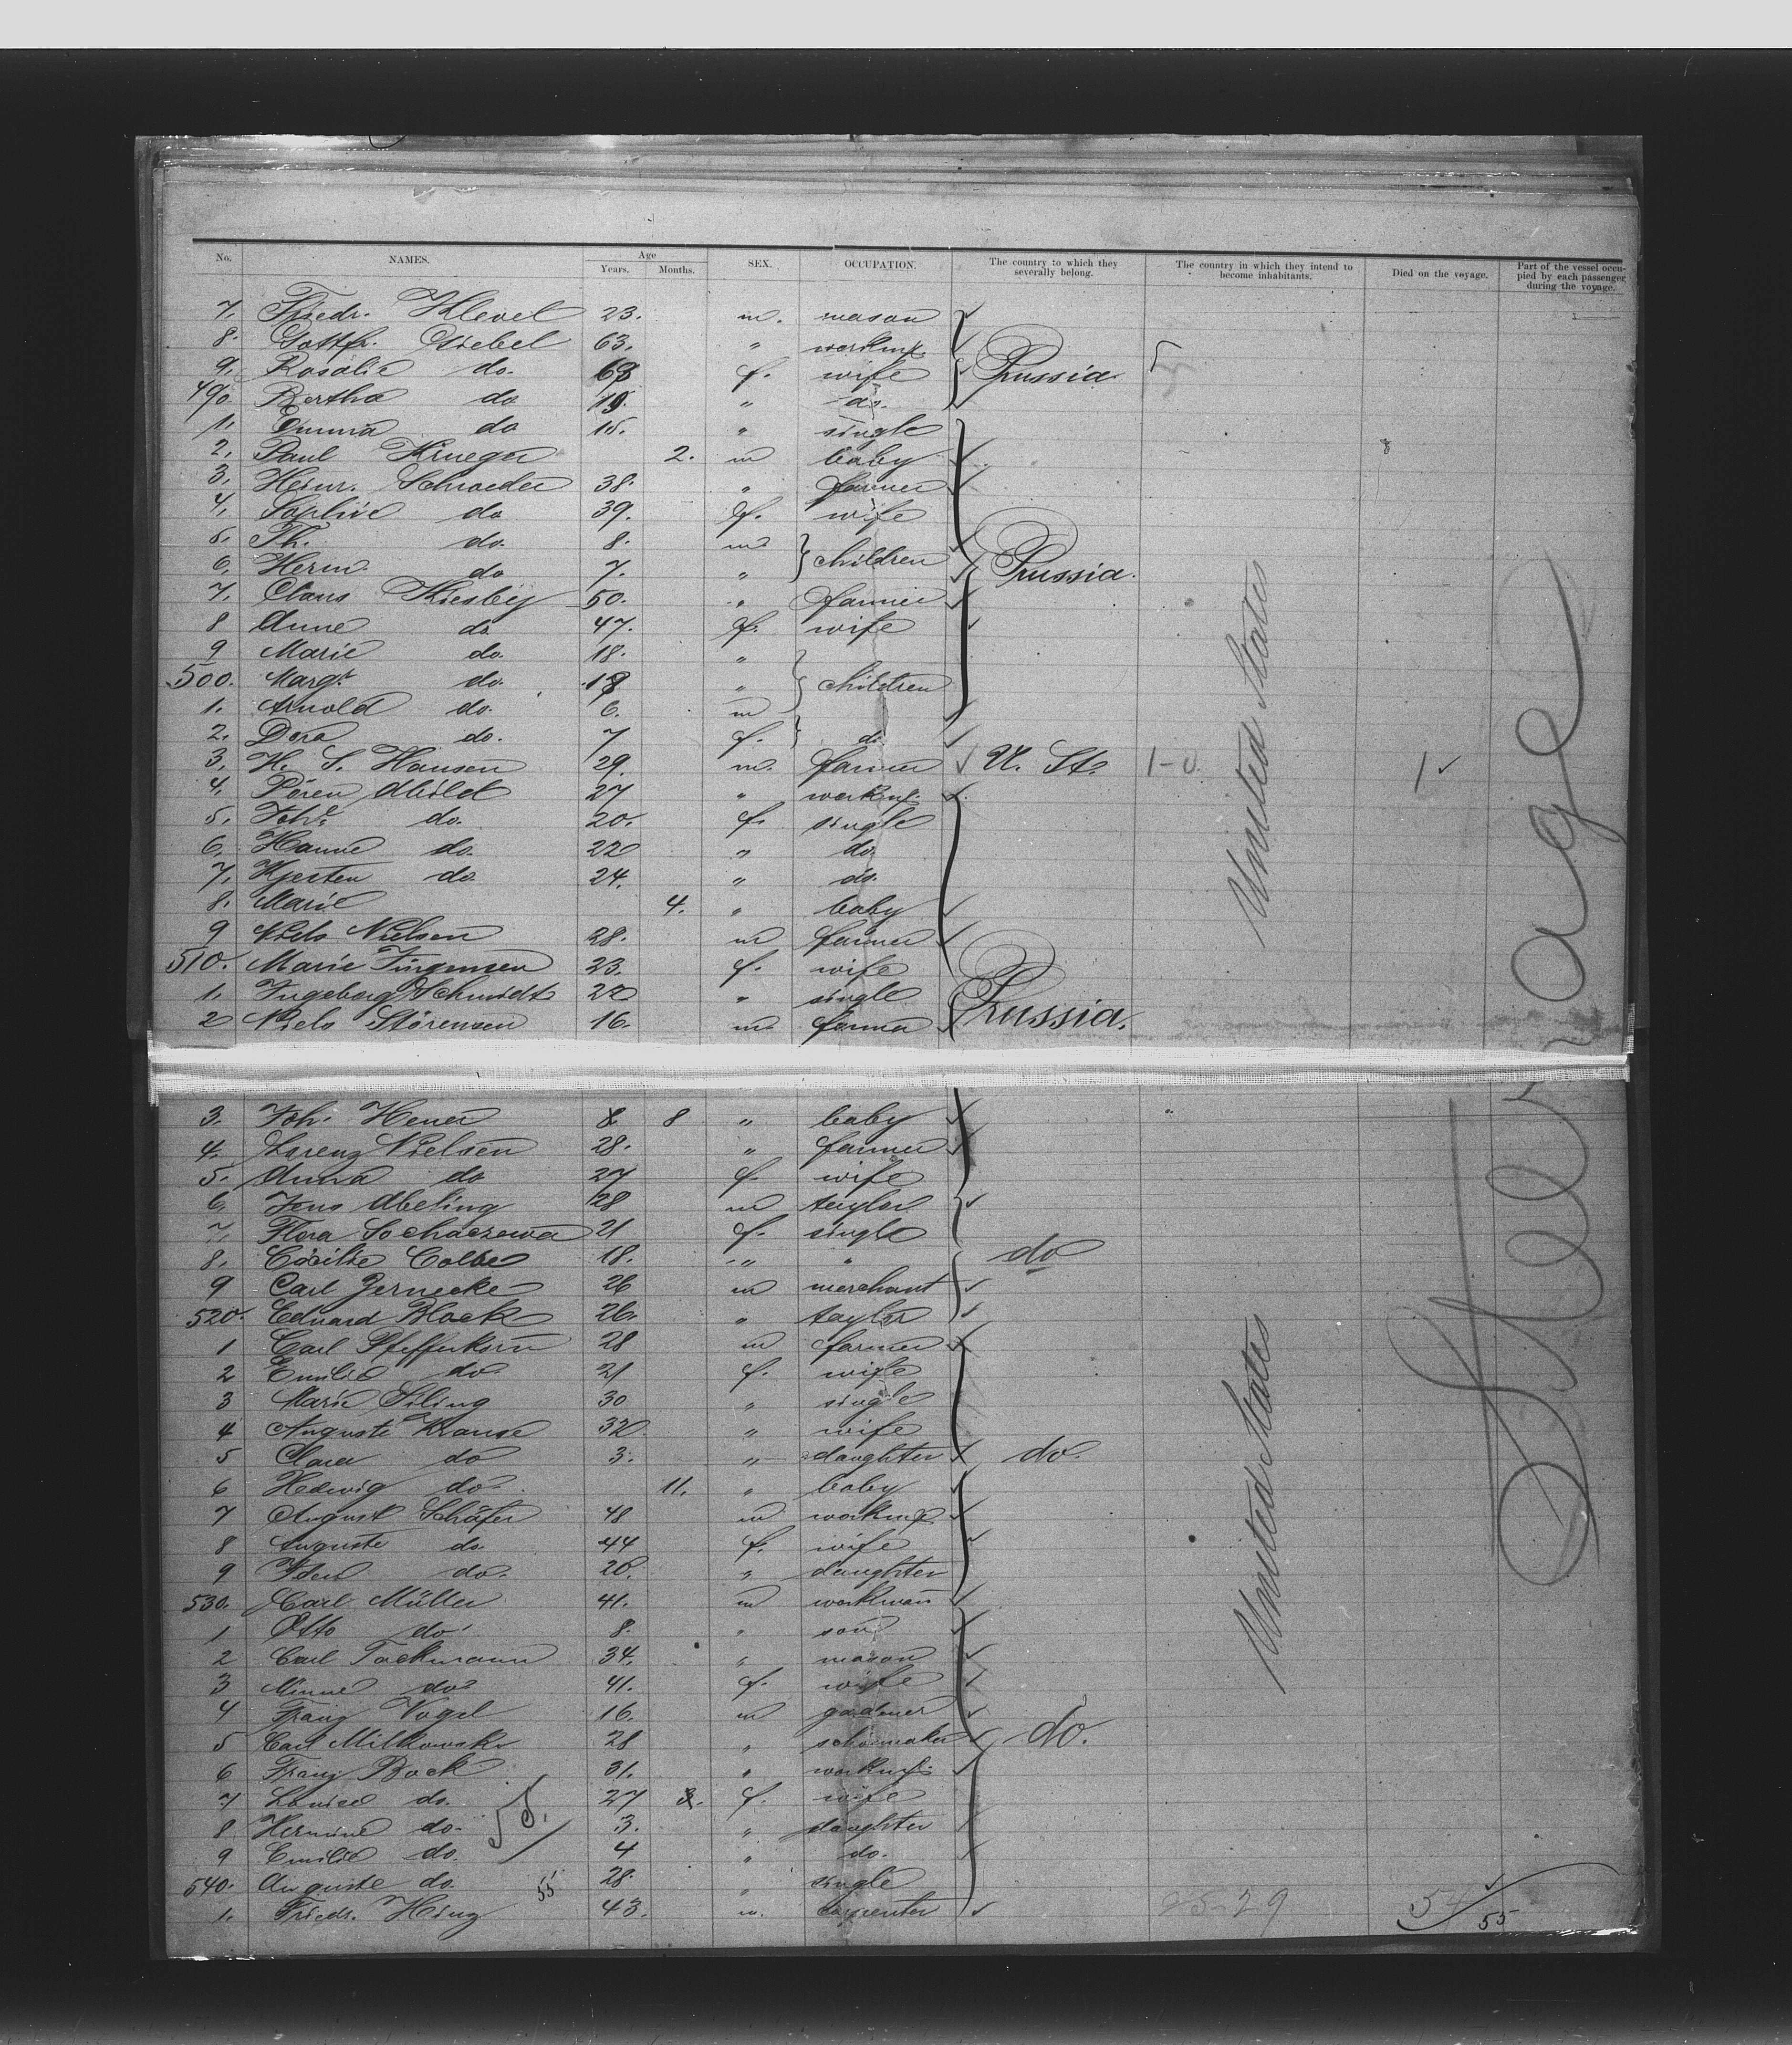 No. NAMES. Age Years. Months. SEX. OCCUPATION. The country to which they severally belong. The country in which they intend to become inhabitants. Died on the voyage. Part of the vessel occupied by each passenger during the voyage.
7. Friedr. Klevel 23. m. mason
8. Gottfr. Giebel 63. " workmn.
9. Rosalie do. 63 f. wife Prussia 5
490. Bertha do 19. " do.
1. Emma do 15. " single
2. Paul Krueger 2. m baby
3. Heinr. Schroeder 38. " farmer
4. Sophie do 39. f. wife
5. Th. do. 8. m children
6. Herm. do 7. " Prussia.
7. Claus Kiesby 50. " farmer
8 Anne do. 47. f. wife
9 Marie do. 18. " children
500. Margt. do. 18 "
1. Arnold do. 6. m
2. Dora do. 7 f. do
3. H. S. Hansen 29. m. farmer U. St. 1-0. 1
4. Sören Abild 27 " workmn.
5. Johe. do. 20. f. single
6. Hanne do. 22 " do.
7. Kjesten do. 24. " do.
8. Marie 4. " baby
9 Niels Nielsen 28. m farmer
510. Marie Jürgensen 23. f. wife
1. Ingeborg Schmidt 22 " single
2 Niels Sörensen 16. m farmer Prussia.
United States
3. Joh. Hener 8 8 " baby
4. Lorenz Nielsen 28. " farmer
5. Anna do 27 f. wife
6. Jens Abeling 28 m taylor
7. Flora Sochaczewa 21 f. single
8. Cäcilie Colbe 18. " " do
9 Carl Zernecke 26 m merchant
520. Eduard Block 26. " taylor
1 Carl Pfefferkorn 28 m farmer
2 Emilie do. 21 f. wife
3 Marie Siling 30 " single
4 Auguste Krause 32 " wife
5 Clara do 3. " daughter do.
6 Hedwig do. 11. " baby
7 August Schäfer 48 m workmn.
8 Auguste do. 44 f. wife
9 Ida do. 20. " daughter
530. Carl Müller 41. m workman
1 Otto do. 8. " son
2 Carl Tackmann 34. " mason
3 Minne do. 41. f. wife
4 Franz Vogel 16. m gardner
5 Carl Milkowski 28 " schoemaker do.
6 Franz Bock 31. " workmn.
7 Louise do. 27 3. f. wife
8 Hermine do. 3. " daughter
9 Emilie do. 4 " do.
540. Auguste do. 28. " single
1. Friedr. Hinz 43. m. carpenter
United States
Steerage
55.
55
54
55